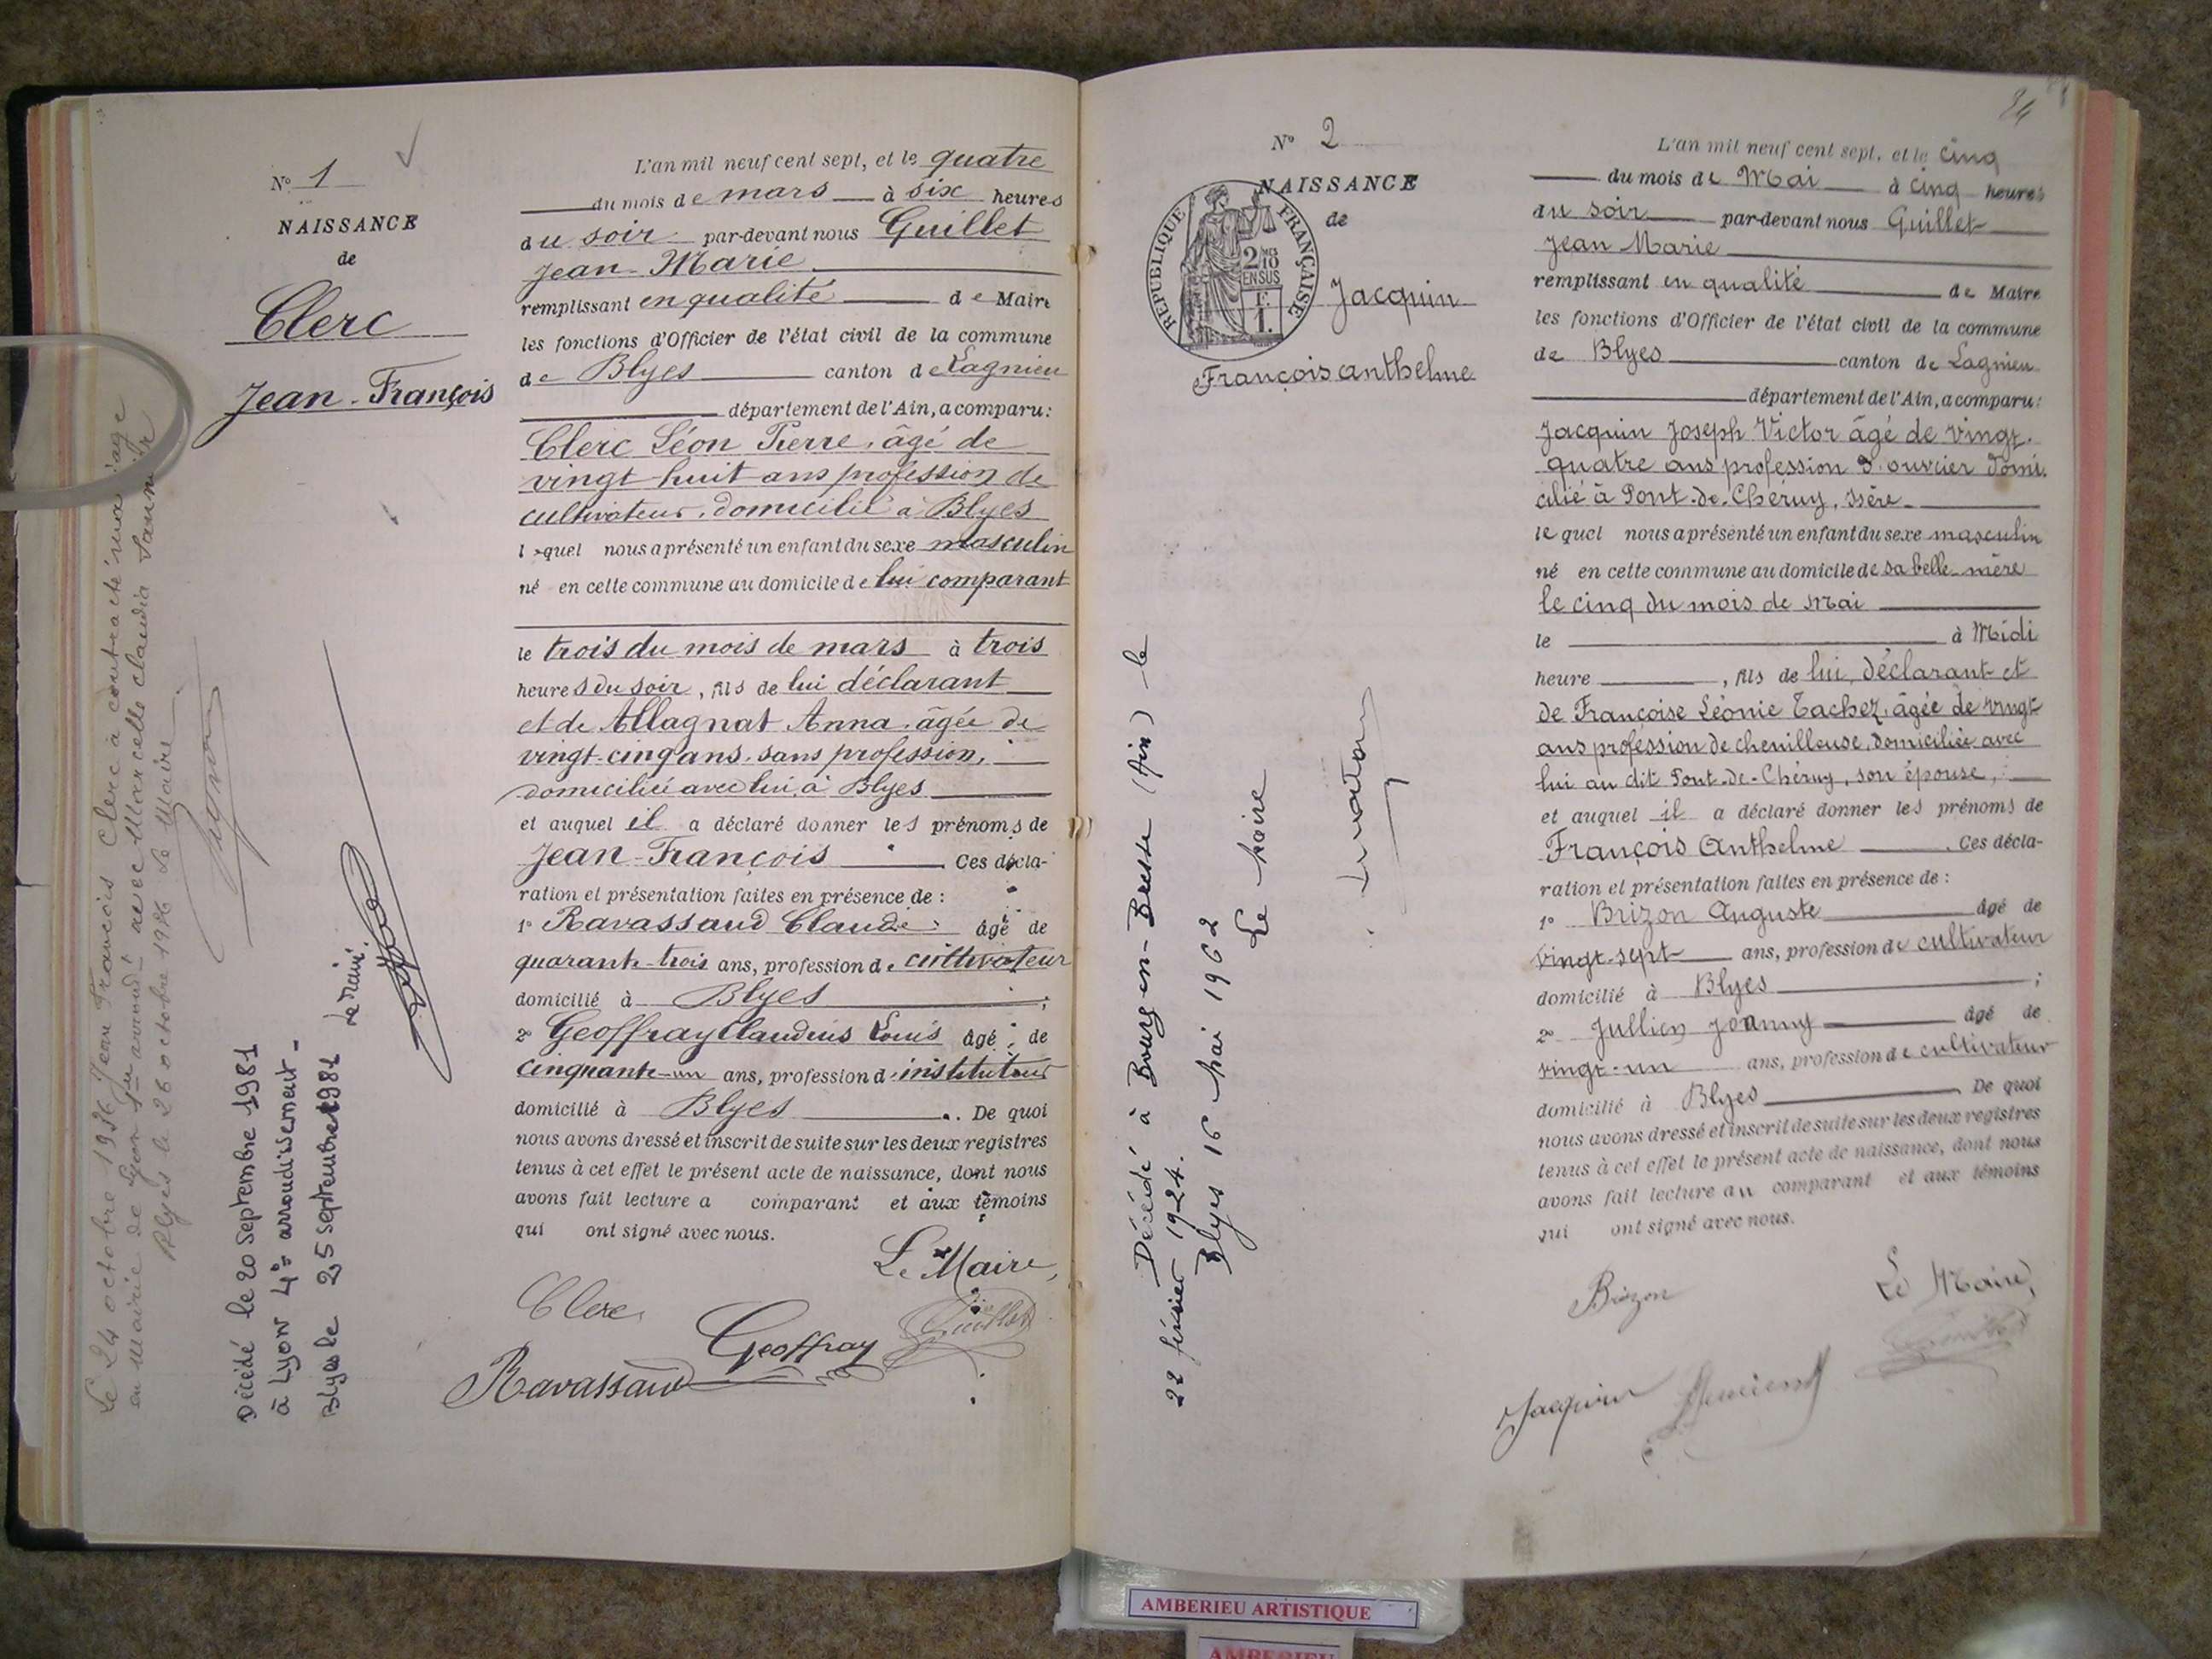 Nº 1
NAISSANCE
de
Clerc
Jean-François
Le 24 octobre 1936 Jean François Clerc a contracté mariage
en mairie de Lyon avec Marcelle Claudia
Blyes le 26 octobre 1936 Le Maire
Décédé le 20 Septembre 1981
à Lyon 4e arrondissement -
Blyes le 25 septembre 1981 Le Maire
L'an mil neuf cent sept, et le quatre
du mois de mars à six heures
du soir par-devant nous Guillet
Jean-Marie
remplissant en qualité de Maire
les fonctions d'Officier de l'état civil de la commune
de Blyes canton de Lagnieu
département de l'Ain, a comparu:
Clerc Léon Pierre, âgé de
vingt-huit ans profession de
cultivateur, domicilié à Blyes
lequel nous a présenté un enfant du sexe masculin
né en cette commune au domicile de lui comparant
le trois du mois de mars à trois
heures du soir, fils de lui déclarant
et de Allagnat Anna, âgée de
vingt-cinq ans, sans profession,
domiciliée avec lui, à Blyes
et auquel il a déclaré donner les prénoms de
Jean-François Ces décla-
ration et présentation faites en présence de :
1º Ravassaud Claude âgé de
quarante-trois ans, profession de cultivateur
domicilié à Blyes ;
2º Geoffray Claudius Louis âgé de
cinquante-un ans, profession d'instituteur
domicilié à Blyes . De quoi
nous avons dressé et inscrit de suite sur les deux registres
tenus à cet effet le présent acte de naissance, dont nous
avons fait lecture a comparant et aux témoins
qui ont signé avec nous.
Le Maire,
Clerc
Geoffray Guillet
Ravassaud
24
Nº 2
NAISSANCE
de
RÉPUBLIQUE FRANÇAISE
2/10 MES
EN SUS
Jacquin
François Anthelme
Décédé à Bourg-en-Bresse (Ain) le
22 février 1924.
Blyes 16 Mai 1962
Le Maire
L'an mil neuf cent sept, et le cinq
du mois de Mai à cinq heures
du soir par-devant nous Guillet
Jean Marie
remplissant en qualité de Maire
les fonctions d'Officier de l'état civil de la commune
de Blyes canton de Lagnieu
département de l'Ain, a comparu:
Jacquin Joseph Victor âgé de vingt-
quatre ans profession d'ouvrier domi-
cilié à Pont-de-Chéruy, Isère
lequel nous a présenté un enfant du sexe masculin
né en cette commune au domicile de sa belle-mère
le cinq du mois de Mai
le à Midi
heure , fils de lui, déclarant et
de Françoise Léonie Tachez, âgée de vingt
ans profession de chenilleuse, domiciliée avec
lui au dit Pont-de-Chéruy, son épouse,
et auquel il a déclaré donner les prénoms de
François Anthelme . Ces décla-
ration et présentation faites en présence de :
1º Brizon Auguste âgé de
vingt-sept ans, profession de cultivateur
domicilié à Blyes ;
2º Jullien Joanny âgé de
vingt-un ans, profession de cultivateur
domicilié à Blyes De quoi
nous avons dressé et inscrit de suite sur les deux registres
tenus à cet effet le présent acte de naissance, dont nous
avons fait lecture au comparant et aux témoins
qui ont signé avec nous.
Brizon Le Maire,
Jacquin
AMBERIEU ARTISTIQUE
AMBERIEU